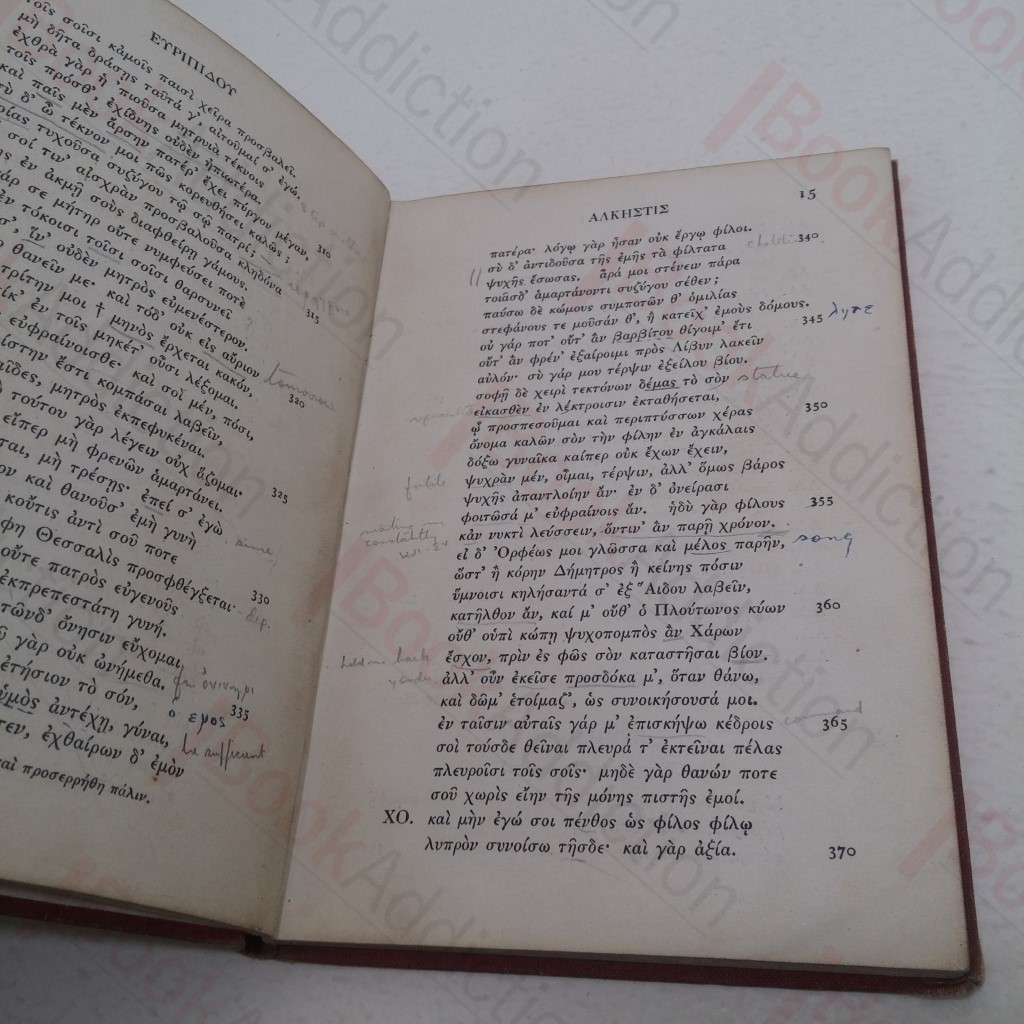 ΕΥΡΙΠΙΔΟΥ
τοῖς σοῖσι κἀμοῖς παισὶ χεῖρα προσβαλεῖ.
μὴ δῆτα δράσῃς ταῦτά γ', αἰτοῦμαί σ' ἐγώ.
ἐχθρὰ γὰρ ἡ 'πιοῦσα μητρυιὰ τέκνοις
τοῖς πρόσθ', ἐχίδνης οὐδὲν ἠπιωτέρα.
καὶ παῖς μὲν ἄρσην πατέρ' ἔχει πύργον μέγαν,
σὺ δ' ὦ τέκνον μοι πῶς κορευθήσει καλῶς;
ποίας τυχοῦσα συζύγου τῷ σῷ πατρί;
σοί τιν' αἰσχρὰν προσβαλοῦσα κληδόνα
ἐν ἀκμῇ σοὺς διαφθείρῃ γάμους.
σε μήτηρ οὔτε νυμφεύσει ποτὲ
τόκοισι τοῖσι σοῖσι θαρσυνεῖ
ἵν' οὐδὲν μητρὸς εὐμενέστερον.
θανεῖν με· καὶ τόδ' οὐκ εἰς αὔριον
τρίτην μοι † μηνὸς ἔρχεται κακόν,
ἐν τοῖς μηκέτ' οὖσι λέξομαι.
εὐφραίνοισθε· καὶ σοὶ μέν, πόσι,
ἔστι κομπάσαι λαβεῖν,
μητρὸς ἐκπεφυκέναι.
τούτου γὰρ λέγειν οὐχ ἅζομαι·
εἴπερ μὴ φρενῶν ἁμαρτάνει.
μὴ τρέσῃς· ἐπεί σ' ἐγὼ
καὶ θανοῦσ' ἐμὴ γυνὴ
κοὔτις ἀντὶ σοῦ ποτε
Θεσσαλὶς προσφθέγξεται·
οὔτε πατρὸς εὐγενοῦς
ἐκπρεπεστάτη γυνή.
τῶνδ' ὄνησιν εὔχομαι
γὰρ οὐκ ὠνήμεθα.
ἐτήσιον τὸ σόν,
οὑμὸς ἀντέχῃ, γύναι,
ἐχθαίρων δ' ἐμὸν
καὶ προσερρήθη πάλιν.
310
315
320
325
330
335
ο εμος
be sufficient
since
ΑΛΚΗΣΤΙΣ 15
πατέρα· λόγῳ γὰρ ἦσαν οὐκ ἔργῳ φίλοι.
σὺ δ' ἀντιδοῦσα τῆς ἐμῆς τὰ φίλτατα 340
ψυχῆς ἔσωσας. ἆρά μοι στένειν πάρα
τοιᾶσδ' ἁμαρτάνοντι συζύγου σέθεν;
παύσω δὲ κώμους συμποτῶν θ' ὁμιλίας
στεφάνους τε μοῦσάν θ', ἣ κατεῖχ' ἐμοὺς δόμους.
οὐ γάρ ποτ' οὔτ' ἂν βαρβίτου θίγοιμ' ἔτι 345
οὔτ' ἂν φρέν' ἐξαίροιμι πρὸς Λίβυν λακεῖν
αὐλόν· σὺ γάρ μου τέρψιν ἐξείλου βίου.
σοφῇ δὲ χειρὶ τεκτόνων δέμας τὸ σὸν statue
εἰκασθὲν ἐν λέκτροισιν ἐκταθήσεται,
ᾧ προσπεσοῦμαι καὶ περιπτύσσων χέρας 350
ὄνομα καλῶν σὸν τὴν φίλην ἐν ἀγκάλαις
δόξω γυναῖκα καίπερ οὐκ ἔχων ἔχειν,
ψυχρὰν μέν, οἶμαι, τέρψιν, ἀλλ' ὅμως βάρος
ψυχῆς ἀπαντλοίην ἄν· ἐν δ' ὀνείρασι
φοιτῶσά μ' εὐφραίνοις ἄν. ἡδὺ γὰρ φίλους 355
κἀν νυκτὶ λεύσσειν, ὅντιν' ἂν παρῇ χρόνον.
εἰ δ' Ὀρφέως μοι γλῶσσα καὶ μέλος παρῆν, song
ὥστ' ἢ κόρην Δήμητρος ἢ κείνης πόσιν
ὕμνοισι κηλήσαντά σ' ἐξ Ἅιδου λαβεῖν,
κατῆλθον ἄν, καί μ' οὔθ' ὁ Πλούτωνος κύων 360
οὔθ' οὑπὶ κώπῃ ψυχοπομπὸς ἂν Χάρων
hold me back ἔσχον, πρὶν ἐς φῶς σὸν καταστῆσαι βίον.
ἀλλ' οὖν ἐκεῖσε προσδόκα μ', ὅταν θάνω,
καὶ δῶμ' ἑτοίμαζ', ὡς συνοικήσουσά μοι.
ἐν ταῖσιν αὐταῖς γάρ μ' ἐπισκήψω κέδροις 365
σοὶ τούσδε θεῖναι πλευρά τ' ἐκτεῖναι πέλας
πλευροῖσι τοῖς σοῖς· μηδὲ γὰρ θανών ποτε
σοῦ χωρὶς εἴην τῆς μόνης πιστῆς ἐμοί.
ΧΟ. καὶ μὴν ἐγώ σοι πένθος ὡς φίλος φίλῳ
λυπρὸν συνοίσω τῆσδε· καὶ γὰρ ἀξία. 370
BookAddiction